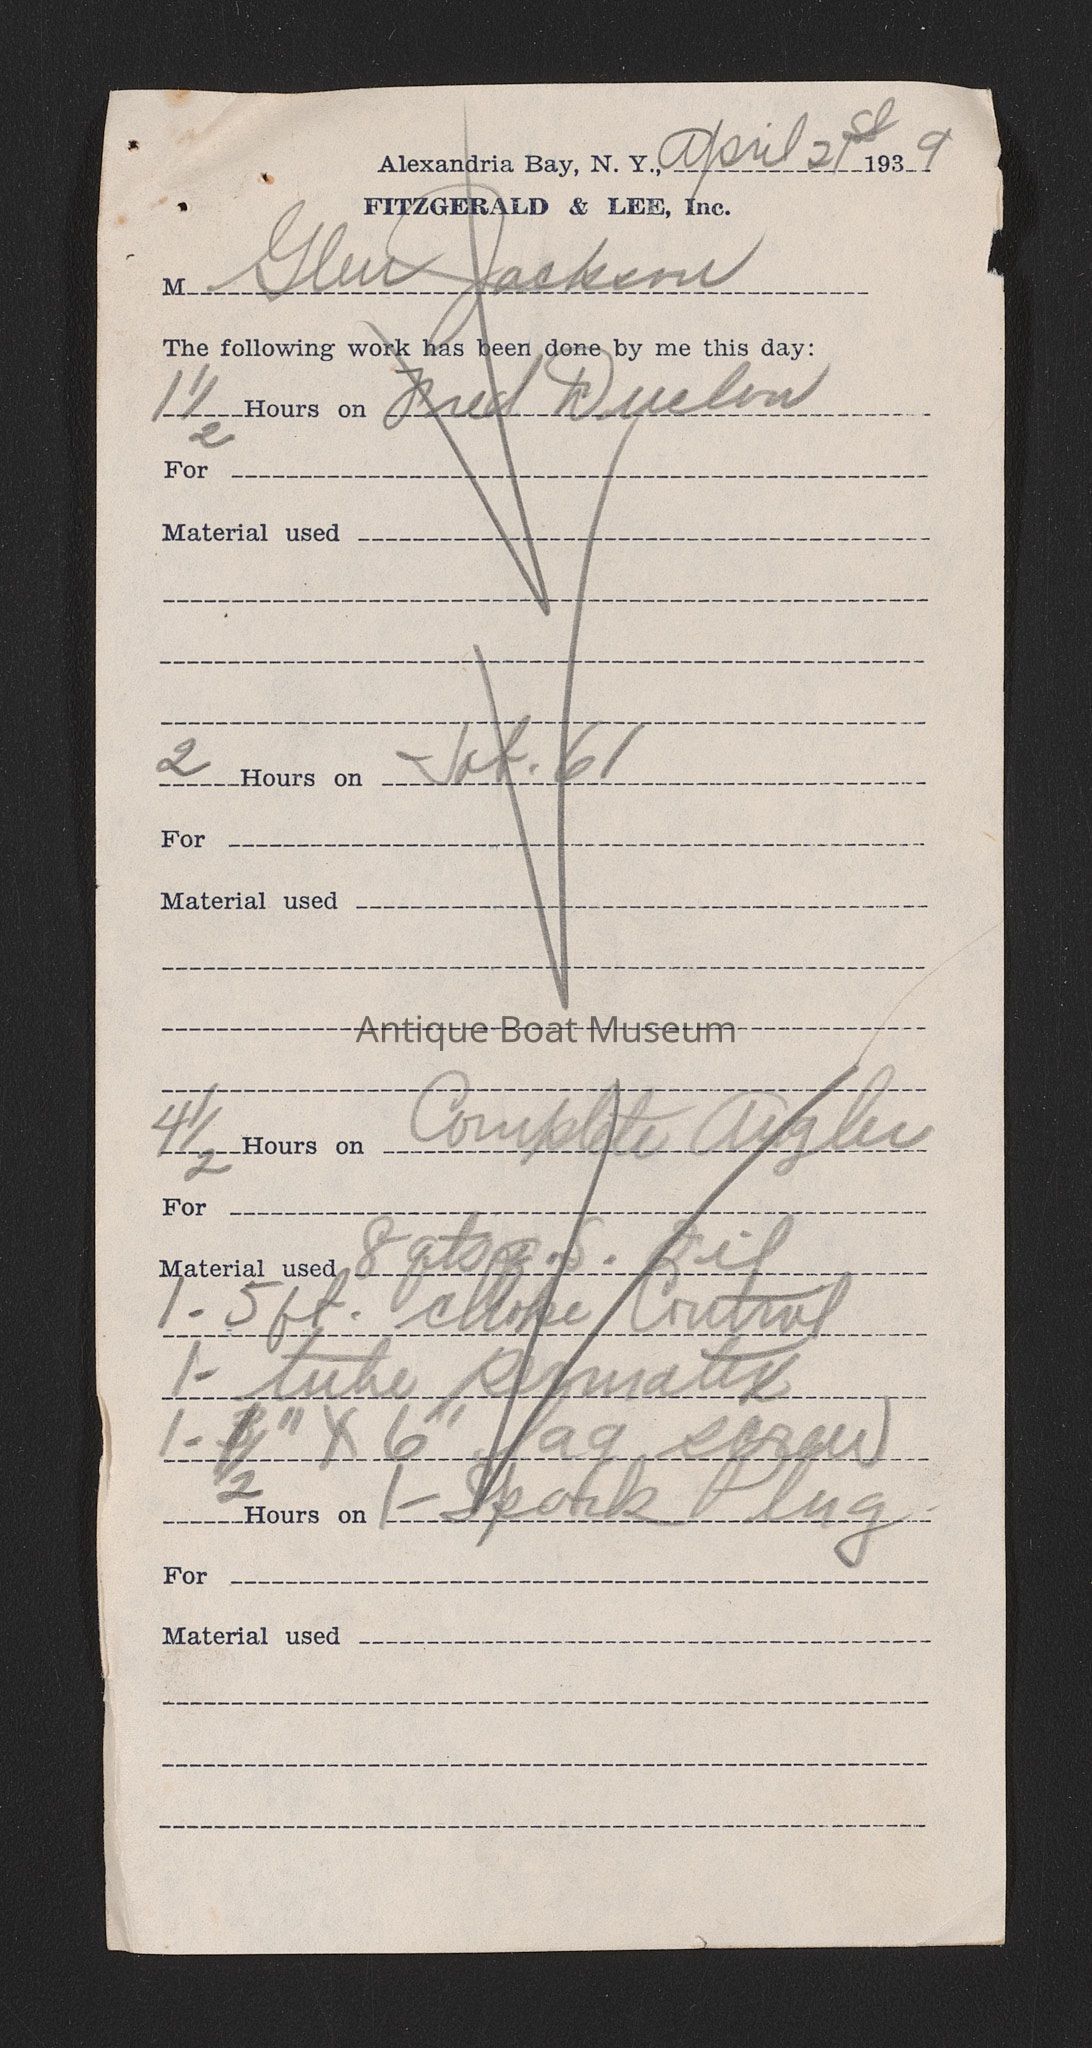 Alexandria Bay, N. Y., April 21st 1939
FITZGERALD & LEE, Inc.
M Glen Jackson
The following work has been done by me this day:
1 1/2 Hours on Fred Duclon
For
Material used
2 Hours on Jot. 61
For
Material used
Antique Boat Museum
4 1/2 Hours on Complete Angler
For
Material used 8 qts oil
1- 5 ft. choke Control
1- tube permatex
1- 1/2" X 6" lag screw
Hours on 1- Spark Plug
For
Material used